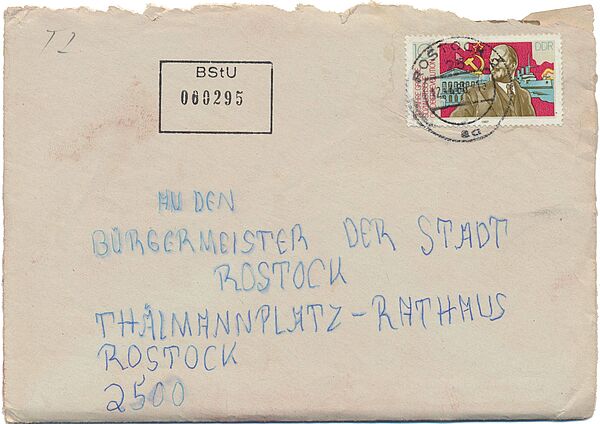 T 2
BStU
000295
10
DDR
ROSTOCK
25
ad
AN DEN
BÜRGERMEISTER DER STADT
ROSTOCK
THÄLMANNPLATZ-RATHAUS
ROSTOCK
2500